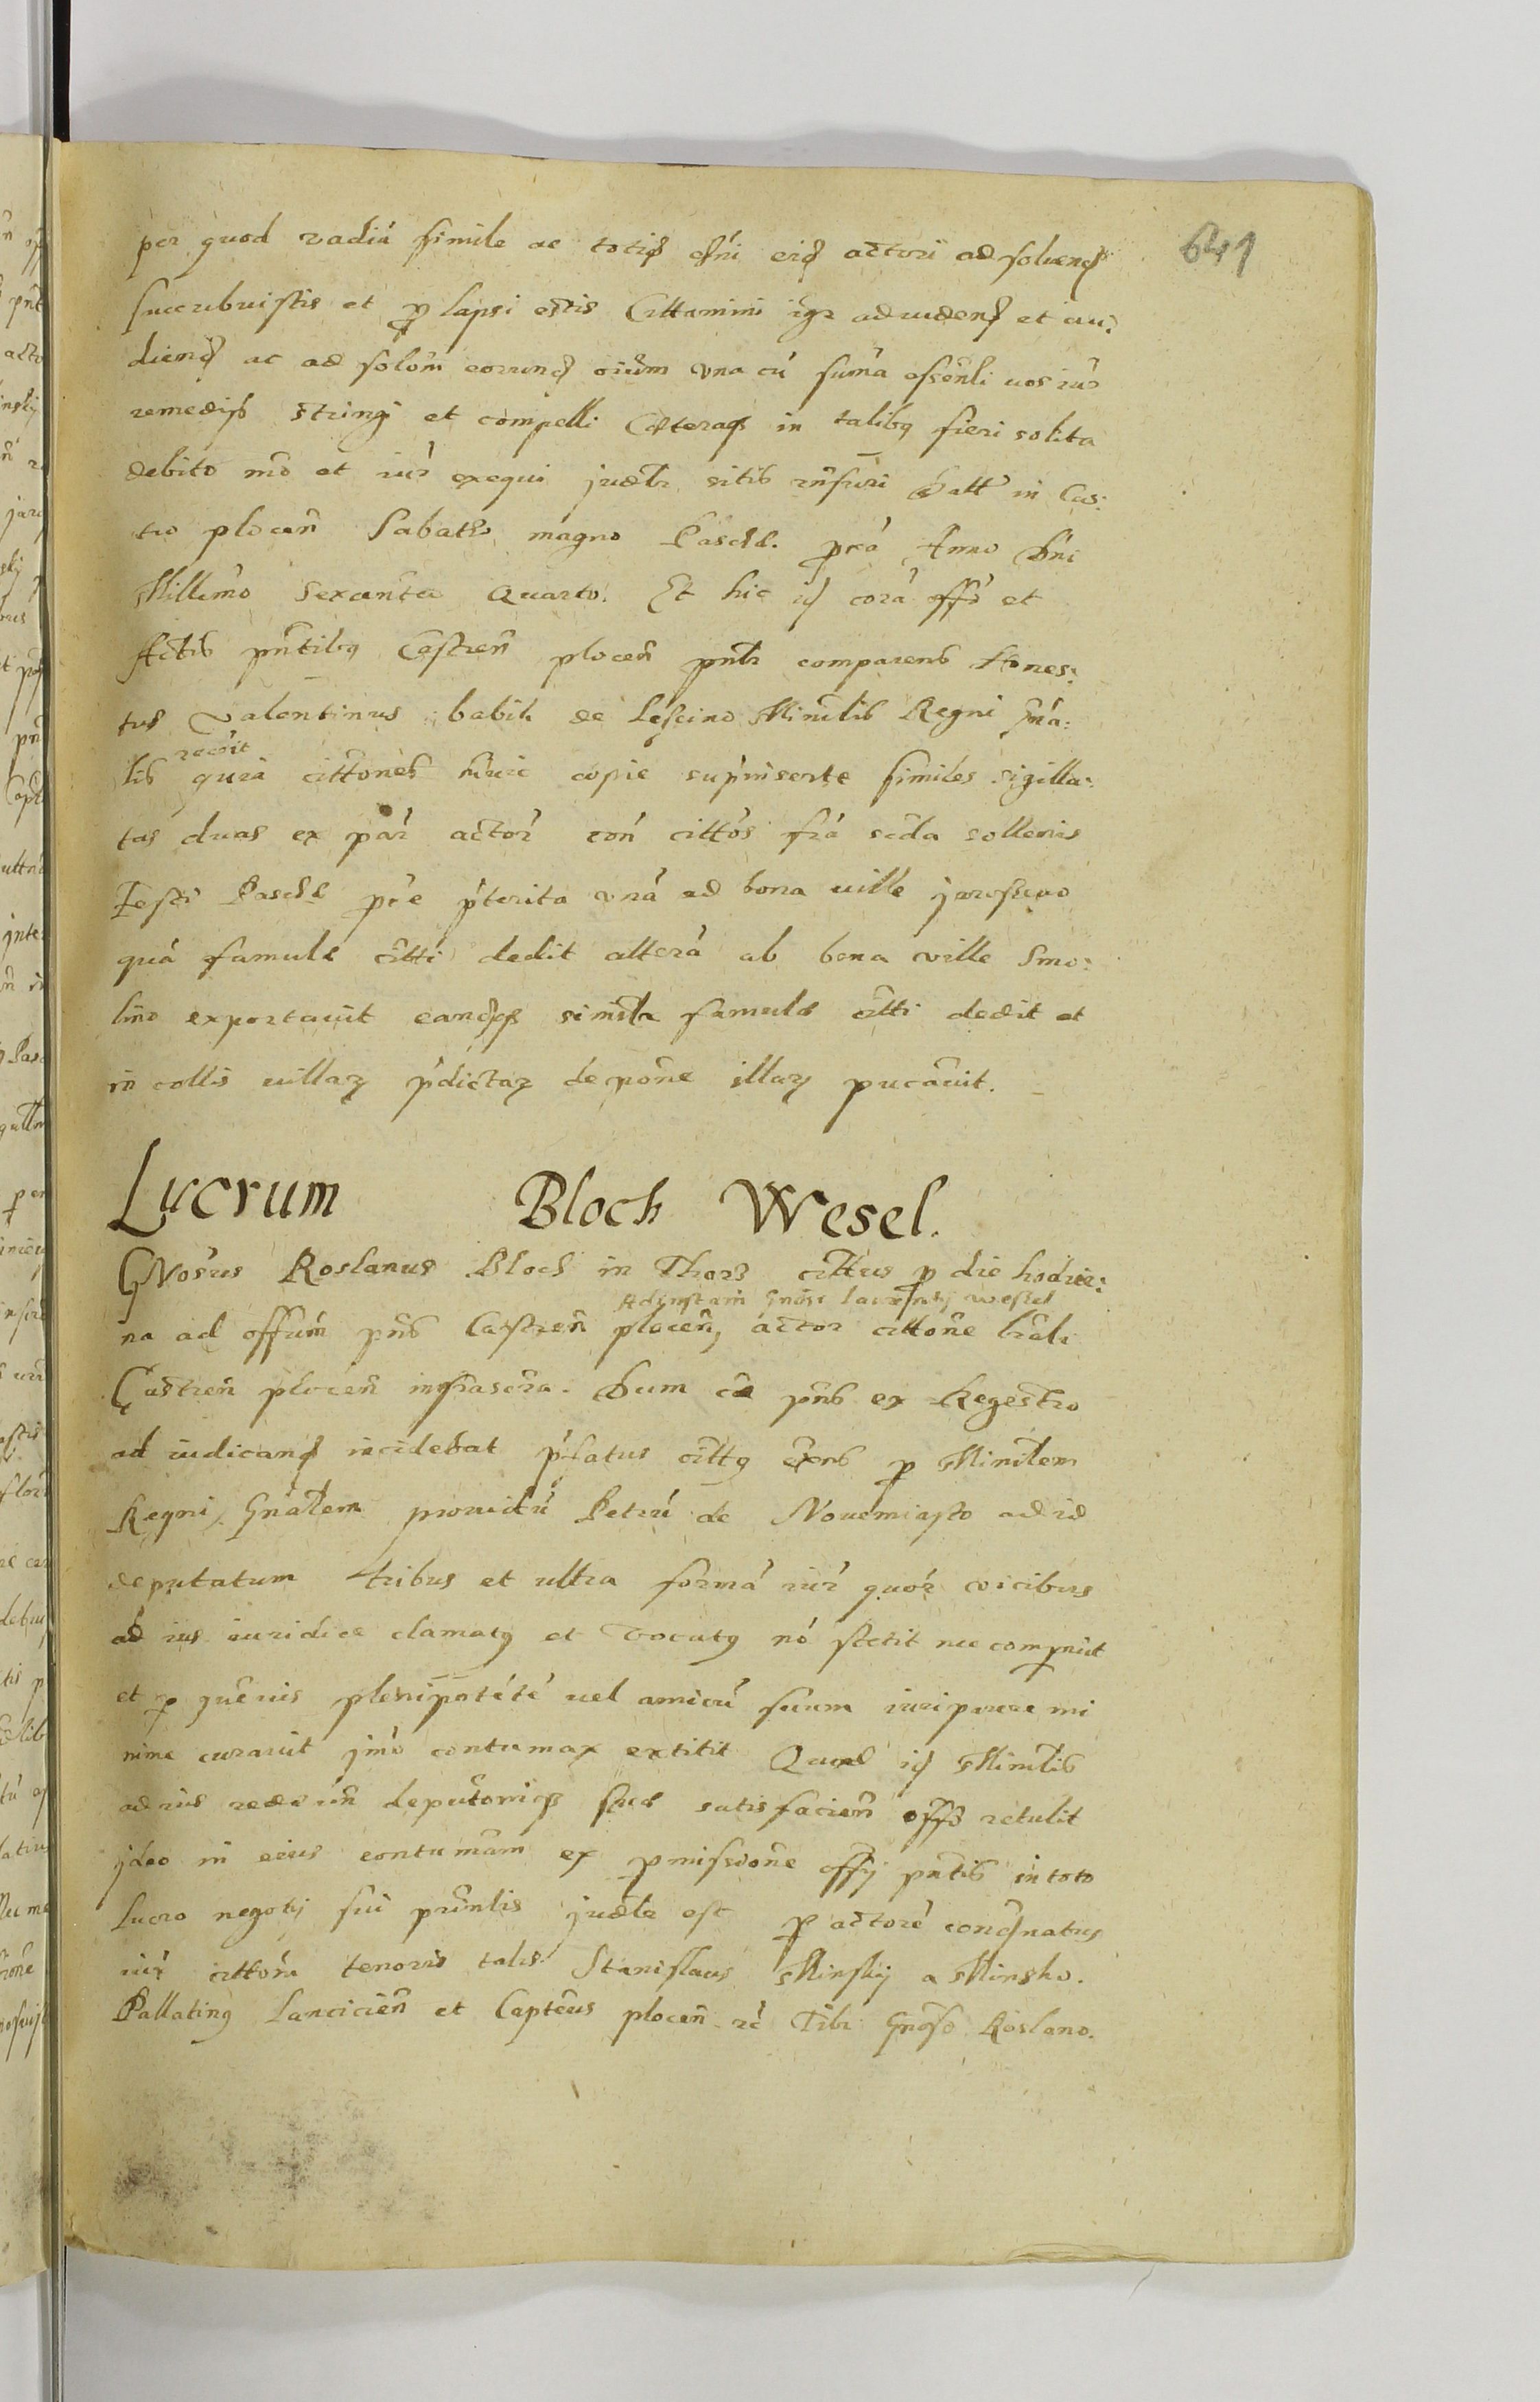 641
per quod vadiũ simile ac totid eñi eid actori ad solvend
succubuistis et prolapsi estis Cittamini igr ad videnđ et au:
dienđ ac ad solõm eorunđ oium vna cũ suma essenli vos iur
remedijs stringi et compelli Cæteraq in talibq fieri solita
debito mõ et iur exequi judlr sitis rñsuri Datt in Cas:
tro plocen Sabatho magno Pasch. pxa Anno Dni
Millimo Sexcentmo Quarto. Et hic id corã offo et
Actis pntibq Castren plocen pntr comparens Hones:
tus Valentinus babik de Lescino Minrlis Regni Gna:
recoit
lis quia cittones huic copie suprinserte similes sigilla:
tas duas ex par actor con cittos fra scda sollenis
Festi Pasch pxe pterita vnã ad bona ville
quã famulo citti dedit alterã ad bona ville Smo:
lino exportavit eandqq simlr famulo citti dedit et
in collis villarz pdictarz depone illarz pucavit.
Lucrum Bloch Wesel.
GNosus Roslanus Bloch in Thorz cittus p die hodier:
Ad instam Gnosi Laurentij Wessel
na ad offum pns Castren plocen, actor cittone lrali
Castren plocen infrascra. Dum ca pns ex Regestro
ad iudicand incidebat pfatus cittq exns p Minrlem
Regni Gnalem providũ Petrũ de Nouemiasto ad id
deputatum tribus et ultra formã iur quor vicibus
ad ius iuridice clamatq et vocatq nõ stetit nec comparuit
et p quemvis plenipotetẽ vel amicũ suum iuri parere mi
nime curavit jmo contumax extitit Quod id Minrlis
ad ius rediens deputoniq sue satisfacien offo retulit
jdeo in eius contumam ex pmissione offij pntis in toto
Lucro negotij sui prinlis judlr est p actorẽ condnatus
iux cittom tenoris talis Stanislaus Minskij a Minsko.
Pallatinq Lancicien et Capteus plocen rc Tibi Gnoso Roslano.